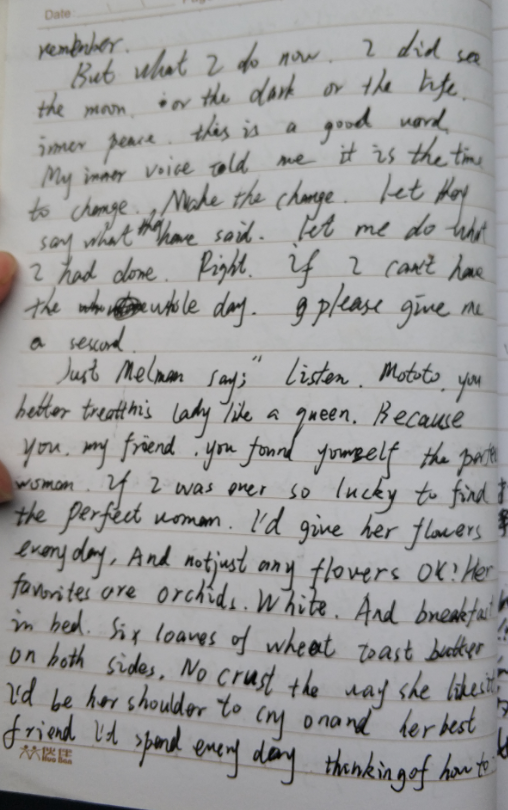 Date
remember.
But what I do now. I did see
the moon. or the dark or the life.
inner peace. this is a good word.
My inner voice told me it is the time
to change. Make the change. Let they
say what they have said. Let me do what
I had done. Right. if I can't have
the whole day. please give me
a second.
Just Melman say; " Listen. Mototo. you
better treat this lady like a queen. Because
you. my friend. you found yourself the perfect
woman. If I was ever so lucky to find
the perfect woman. I'd give her flowers
every day. And not just any flovers OK! Her
favorites are orchids. White. And breakfast
in bed. Six loaves of wheat toast butter
on both sides. No crust the way she likes it
I'd be her shoulder to cry on and her best
friend I'd spend every day thinking of how to